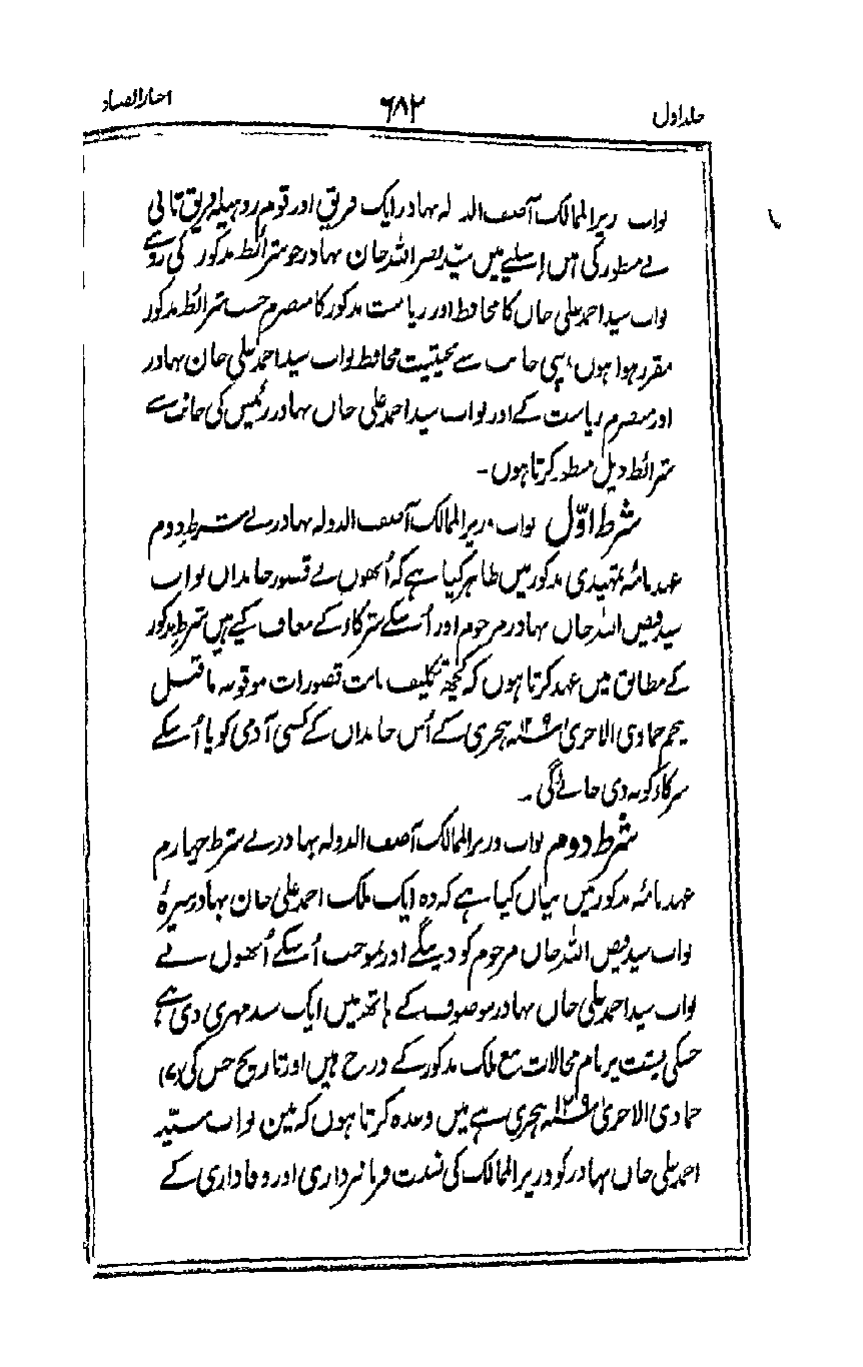 جلد اول
۶۸۲
اخبار الصنادید
نواب وزیر الممالک آصف الدولہ بہادر ایک فریق اور قوم روہیلہ فریق ثانی
نے منظور کی ہیں اسلیے میں سیّد نصر اللہ خان بہادر جو شرائط مذکور کی رو سے
نواب سید احمد علی خاں کا محافظ اور ریاست مذکور کا منصرم حسب شرائط مذکور
مقرر ہوا ہوں اپنی جانب سے بحیثیت محافظ نواب سید احمد علی خان بہادر
اور منصرم ریاست کے اور نواب سید احمد علی خاں بہادر رئیس کی جانب سے
شرائط ذیل منظور کرتا ہوں۔
شرط اوّل نواب وزیر الممالک آصف الدولہ بہادر نے شرط دوم
عہد نامۂ تمہیدی مذکور میں ظاہر کیا ہے کہ اُنھوں نے قصور خاندان نواب
سید فیض اللہ خاں بہادر مرحوم اور اُسکے سرکار کے معاف کیے ہیں شرط مذکور
کے مطابق میں عہد کرتا ہوں کہ کچھ تکلیف بابت قصورات موقوعہ ماقبل
پنجم جمادی الاخریٰ ۱۲۰۹ ہجری کے اُس خاندان کے کسی آدمی کو یا اُسکے
سرکار کو نہ دی جائے گی۔
شرط دوم نواب وزیر الممالک آصف الدولہ بہادر نے شرط چہارم
عہد نامۂ مذکور میں بیان کیا ہے کہ وہ ایک ملک احمد علی خان بہادر نبیرۂ
نواب سید فیض اللہ خاں مرحوم کو دینگے اور بموجب اُسکے اُنھوں نے
نواب سید احمد علی خاں بہادر موصوف کے ہاتھ میں ایک سند مہری دی ہے
جسکی پشت پر نام محالات مع ملک مذکور کے درج ہیں اور تاریخ جس کی (۷)
جمادی الاخریٰ ۱۲۰۹ ہجری ہے میں وعدہ کرتا ہوں کہ مین نواب سیّد
احمد علی خاں بہادر کو وزیر الممالک کی نسبت فرمانبرداری اور وفاداری کے